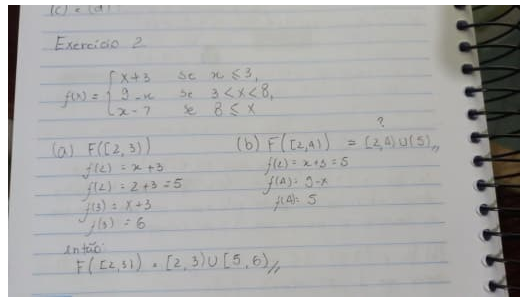 (c) e (d)
Exercício 2
f(x) = { x+3 se x ≤ 3,
9-x se 3 < x < 8,
x-7 se 8 ≤ x
(a) F([2,3))
f(2) = x+3
f(2) = 2+3 = 5
f(3) = x+3
f(3) = 6
então:
F([2,3) = [2,3) U [5,6)//
?
(b) F([2,4) = [2,4) U (5)//
f(2) = x+3 = 5
f(4) = 9-x
f(4) = 5